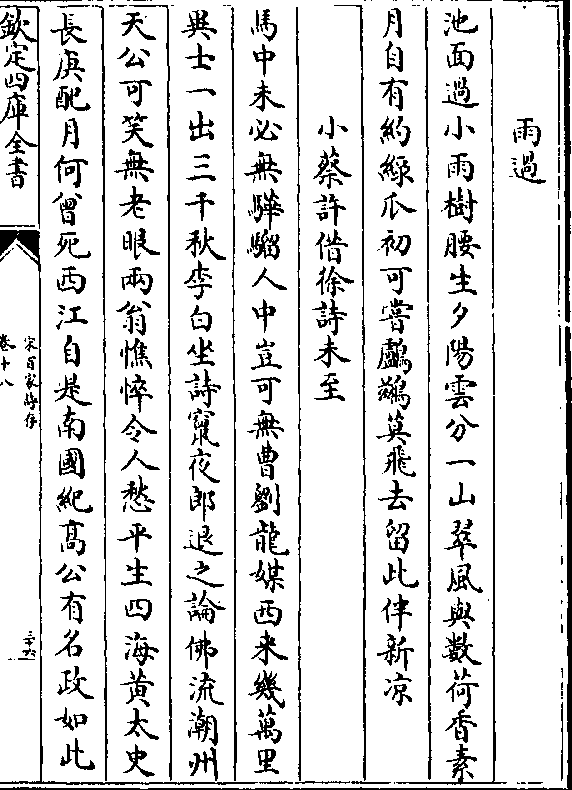 雨過
池面過小雨樹腰生夕陽雲分一山翠風與數荷香素
月自有約綠瓜初可嘗鸕鷀莫飛去留此伴新凉
小蔡許借徐詩未至
馬中未必無驊騮人中豈可無曹劉龍媒西來幾萬里
異士一出三千秋李白坐詩竄夜郎退之論佛流潮州
天公可笑無老眼兩翁憔悴令人愁平生四海黄太史
長庚配月何曾死西江自是南國紀髙公有名政如此
欽定四庫全書
宋百家詩存
卷十八
三六